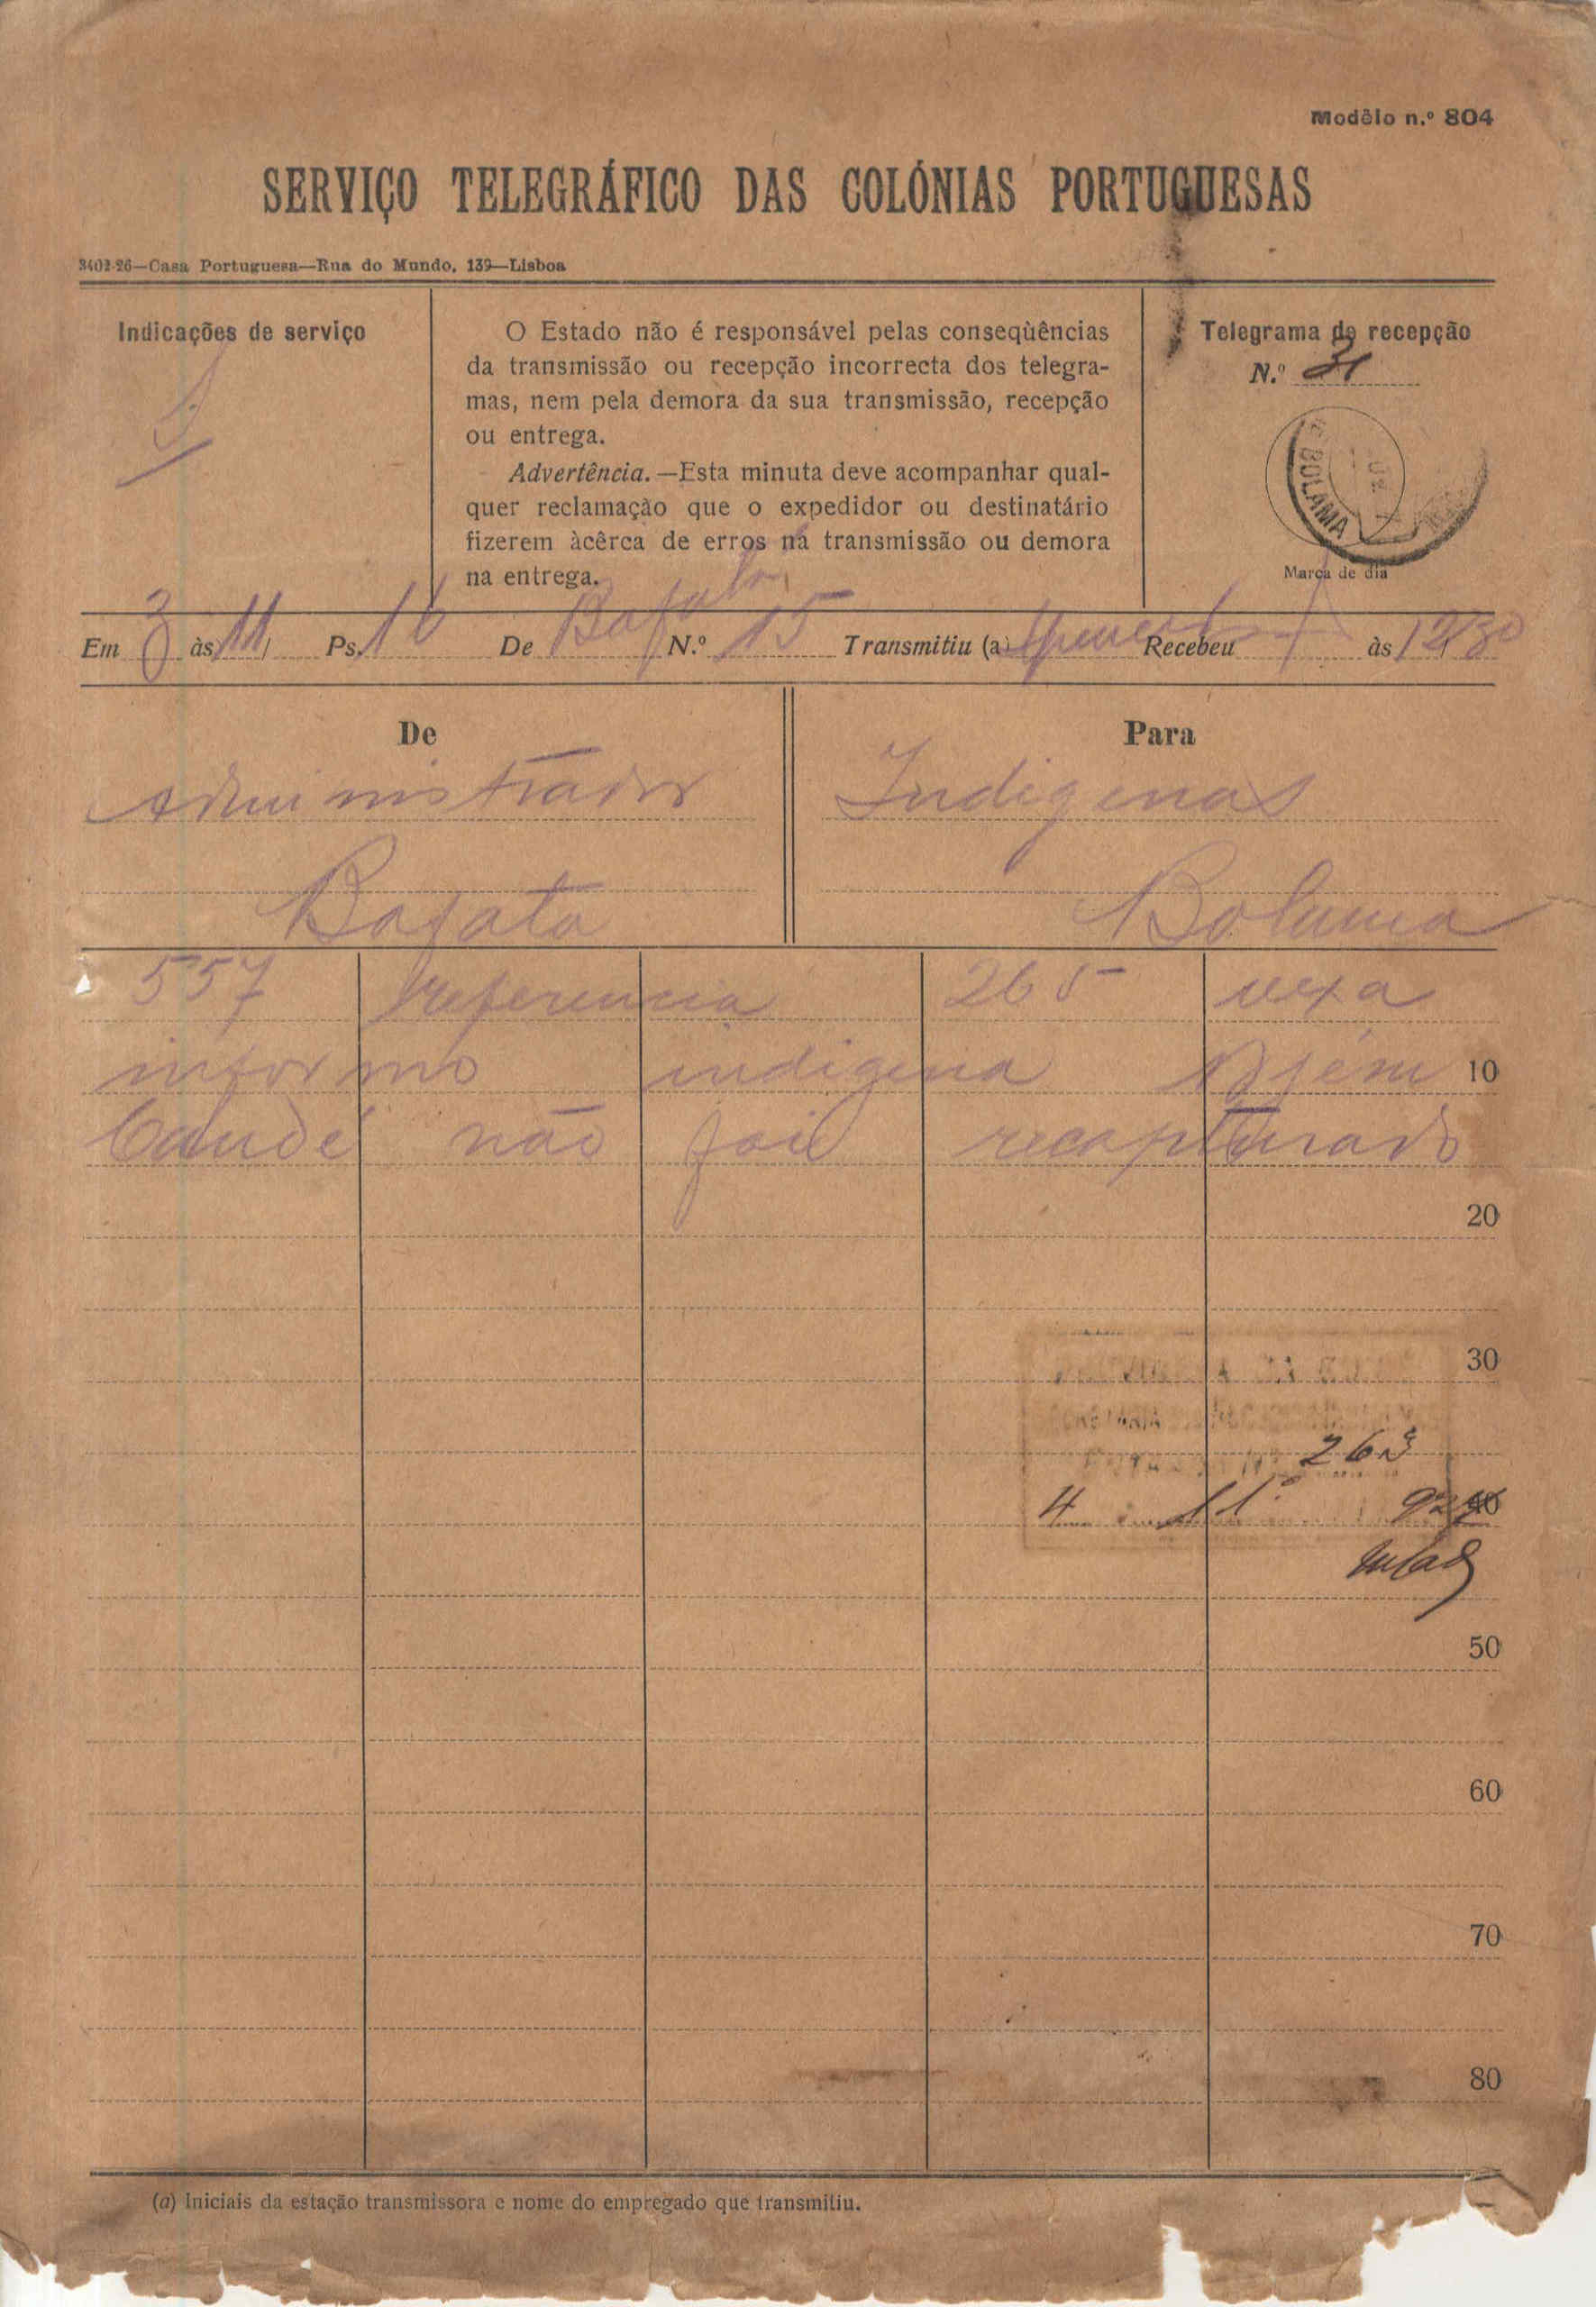 Modêlo n.º 804
SERVIÇO TELEGRÁFICO DAS COLÓNIAS PORTUGUESAS
3402-26—Casa Portuguesa—Rua do Mundo, 139—Lisboa
Indicações de serviço
O Estado não é responsável pelas conseqüências
da transmissão ou recepção incorrecta dos telegra-
mas, nem pela demora da sua transmissão, recepção
ou entrega.
Advertência.—Esta minuta deve acompanhar qual-
quer reclamação que o expedidor ou destinatário
fizerem àcêrca de erros na transmissão ou demora
na entrega.
Telegrama de recepção
N.º
BOLAMA
Marca de dia
Em 3 às 11 Ps. 16 De Bafatá N.º 15 Transmitiu (a) Recebeu às 12/30
De
Administrador
Bafata
Para
Indigenas
Bolama
557 referencia 265 vexa
informo indigena 10
não foi recapturado
20
30
263
4 11 927
40
50
60
70
80
(a) Iniciais da estação transmissora e nome do empregado que transmitiu.